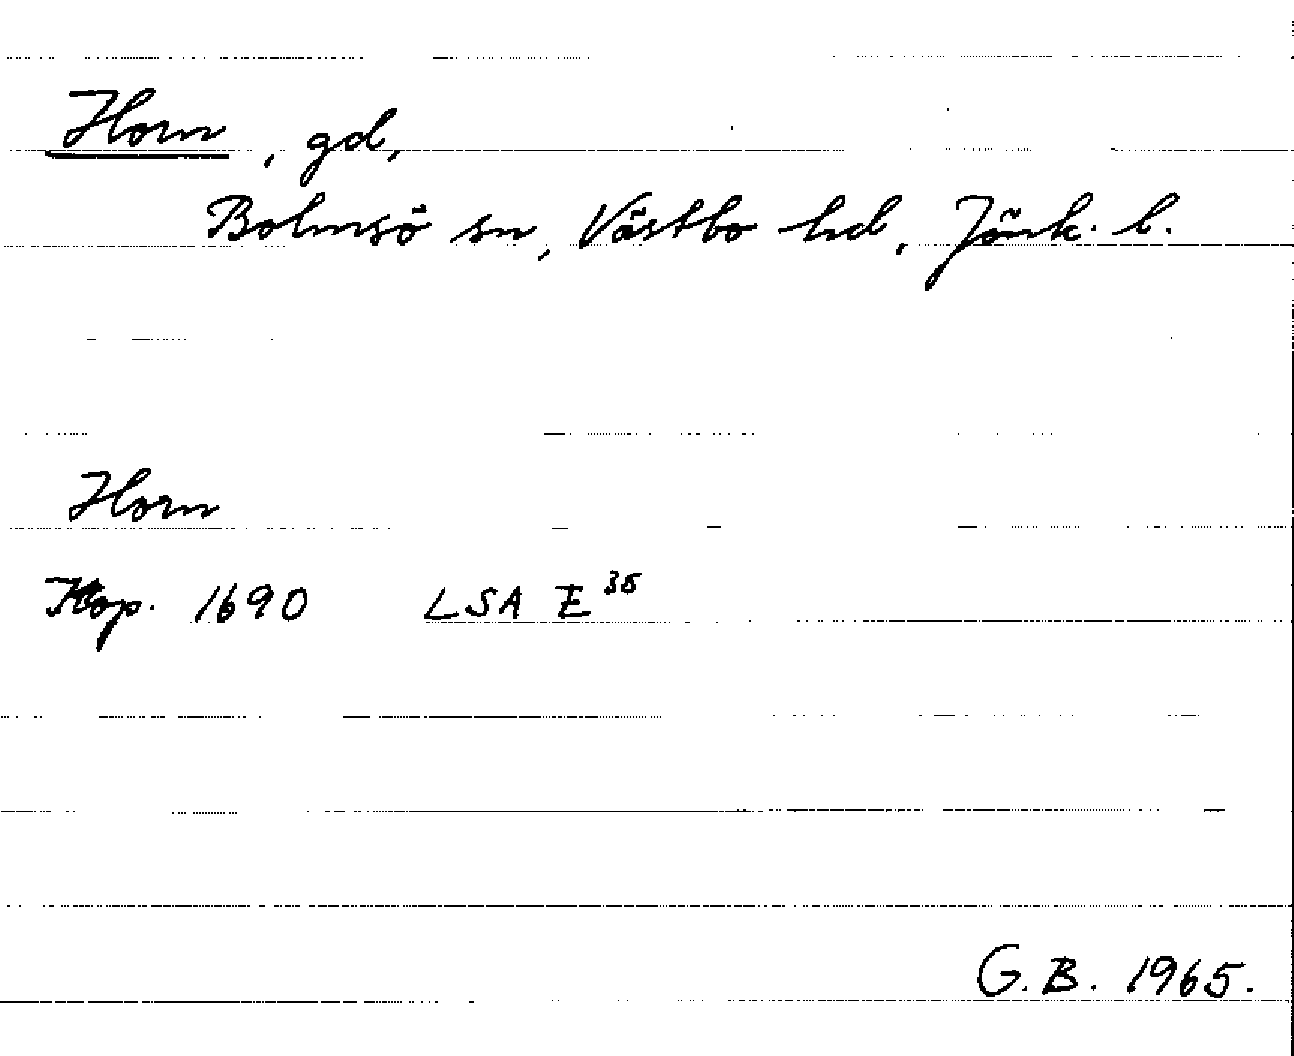 Horn, gd,
Bolmsö sn, Västbo hd, Jönk. l.
Horn
Kop. 1690 LSA E 35
G.B. 1965.